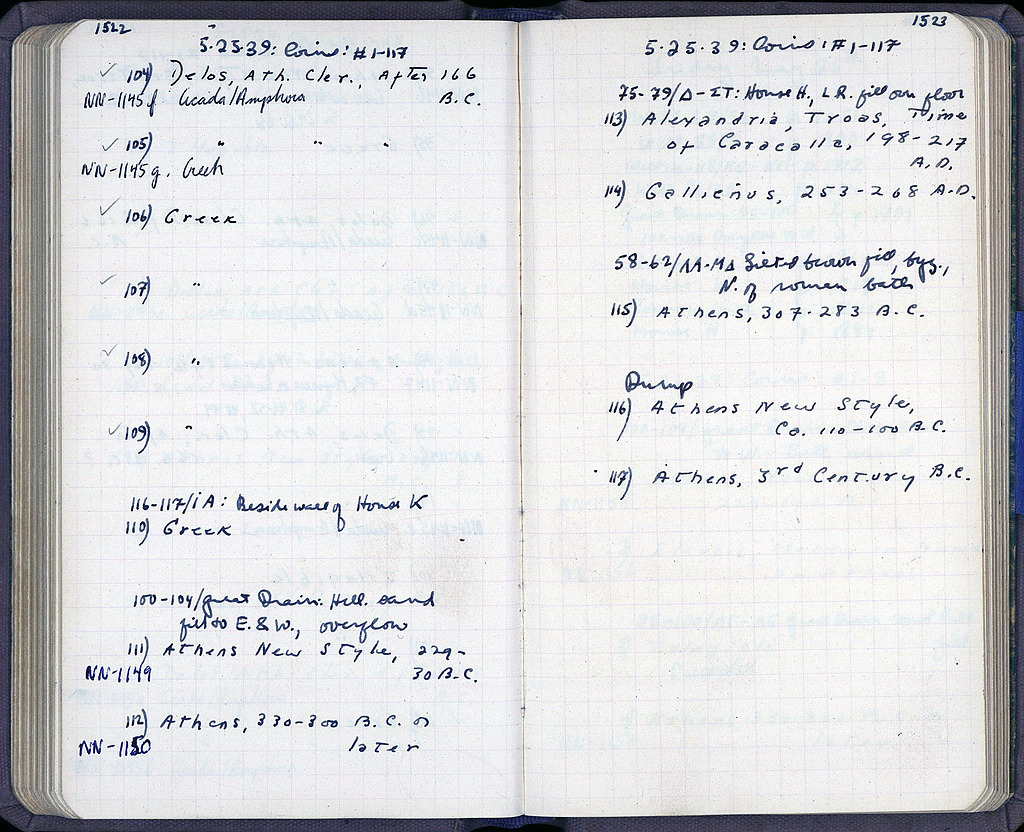 1522
5·25·39: Coins: #1-117
✓ 104) Delos, Ath. Cler., After 166
NN-1145f Cicada/Amphora B.C.
✓ 105) " " "
NN-1145g. Greek
✓ 106) Greek
✓ 107) "
✓ 108) "
✓ 109) "
116-117/IA: Beside wall of House K
110) Greek
100-104/Great Drain: Hell. sand
fill to E. & W., overflow
111) Athens New Style, 229-
NN-1149 30 B.C.
112) Athens, 330-300 B.C. or
NN-1150 later
1523
5·25·39: Coins: #1-117
75-79/Δ-ΣΤ: House H, L.R. fill over floor
113) Alexandria, Troas, Time
of Caracalla, 198-217
A.D.
114) Gallienus, 253-268 A.D.
58-62/ΛΑ-ΜΔ brown fill, byz.,
N. of roman bath
115) Athens, 307-283 B.C.
Dump
116) Athens New Style,
Ca. 110-100 B.C.
117) Athens, 3rd Century B.C.